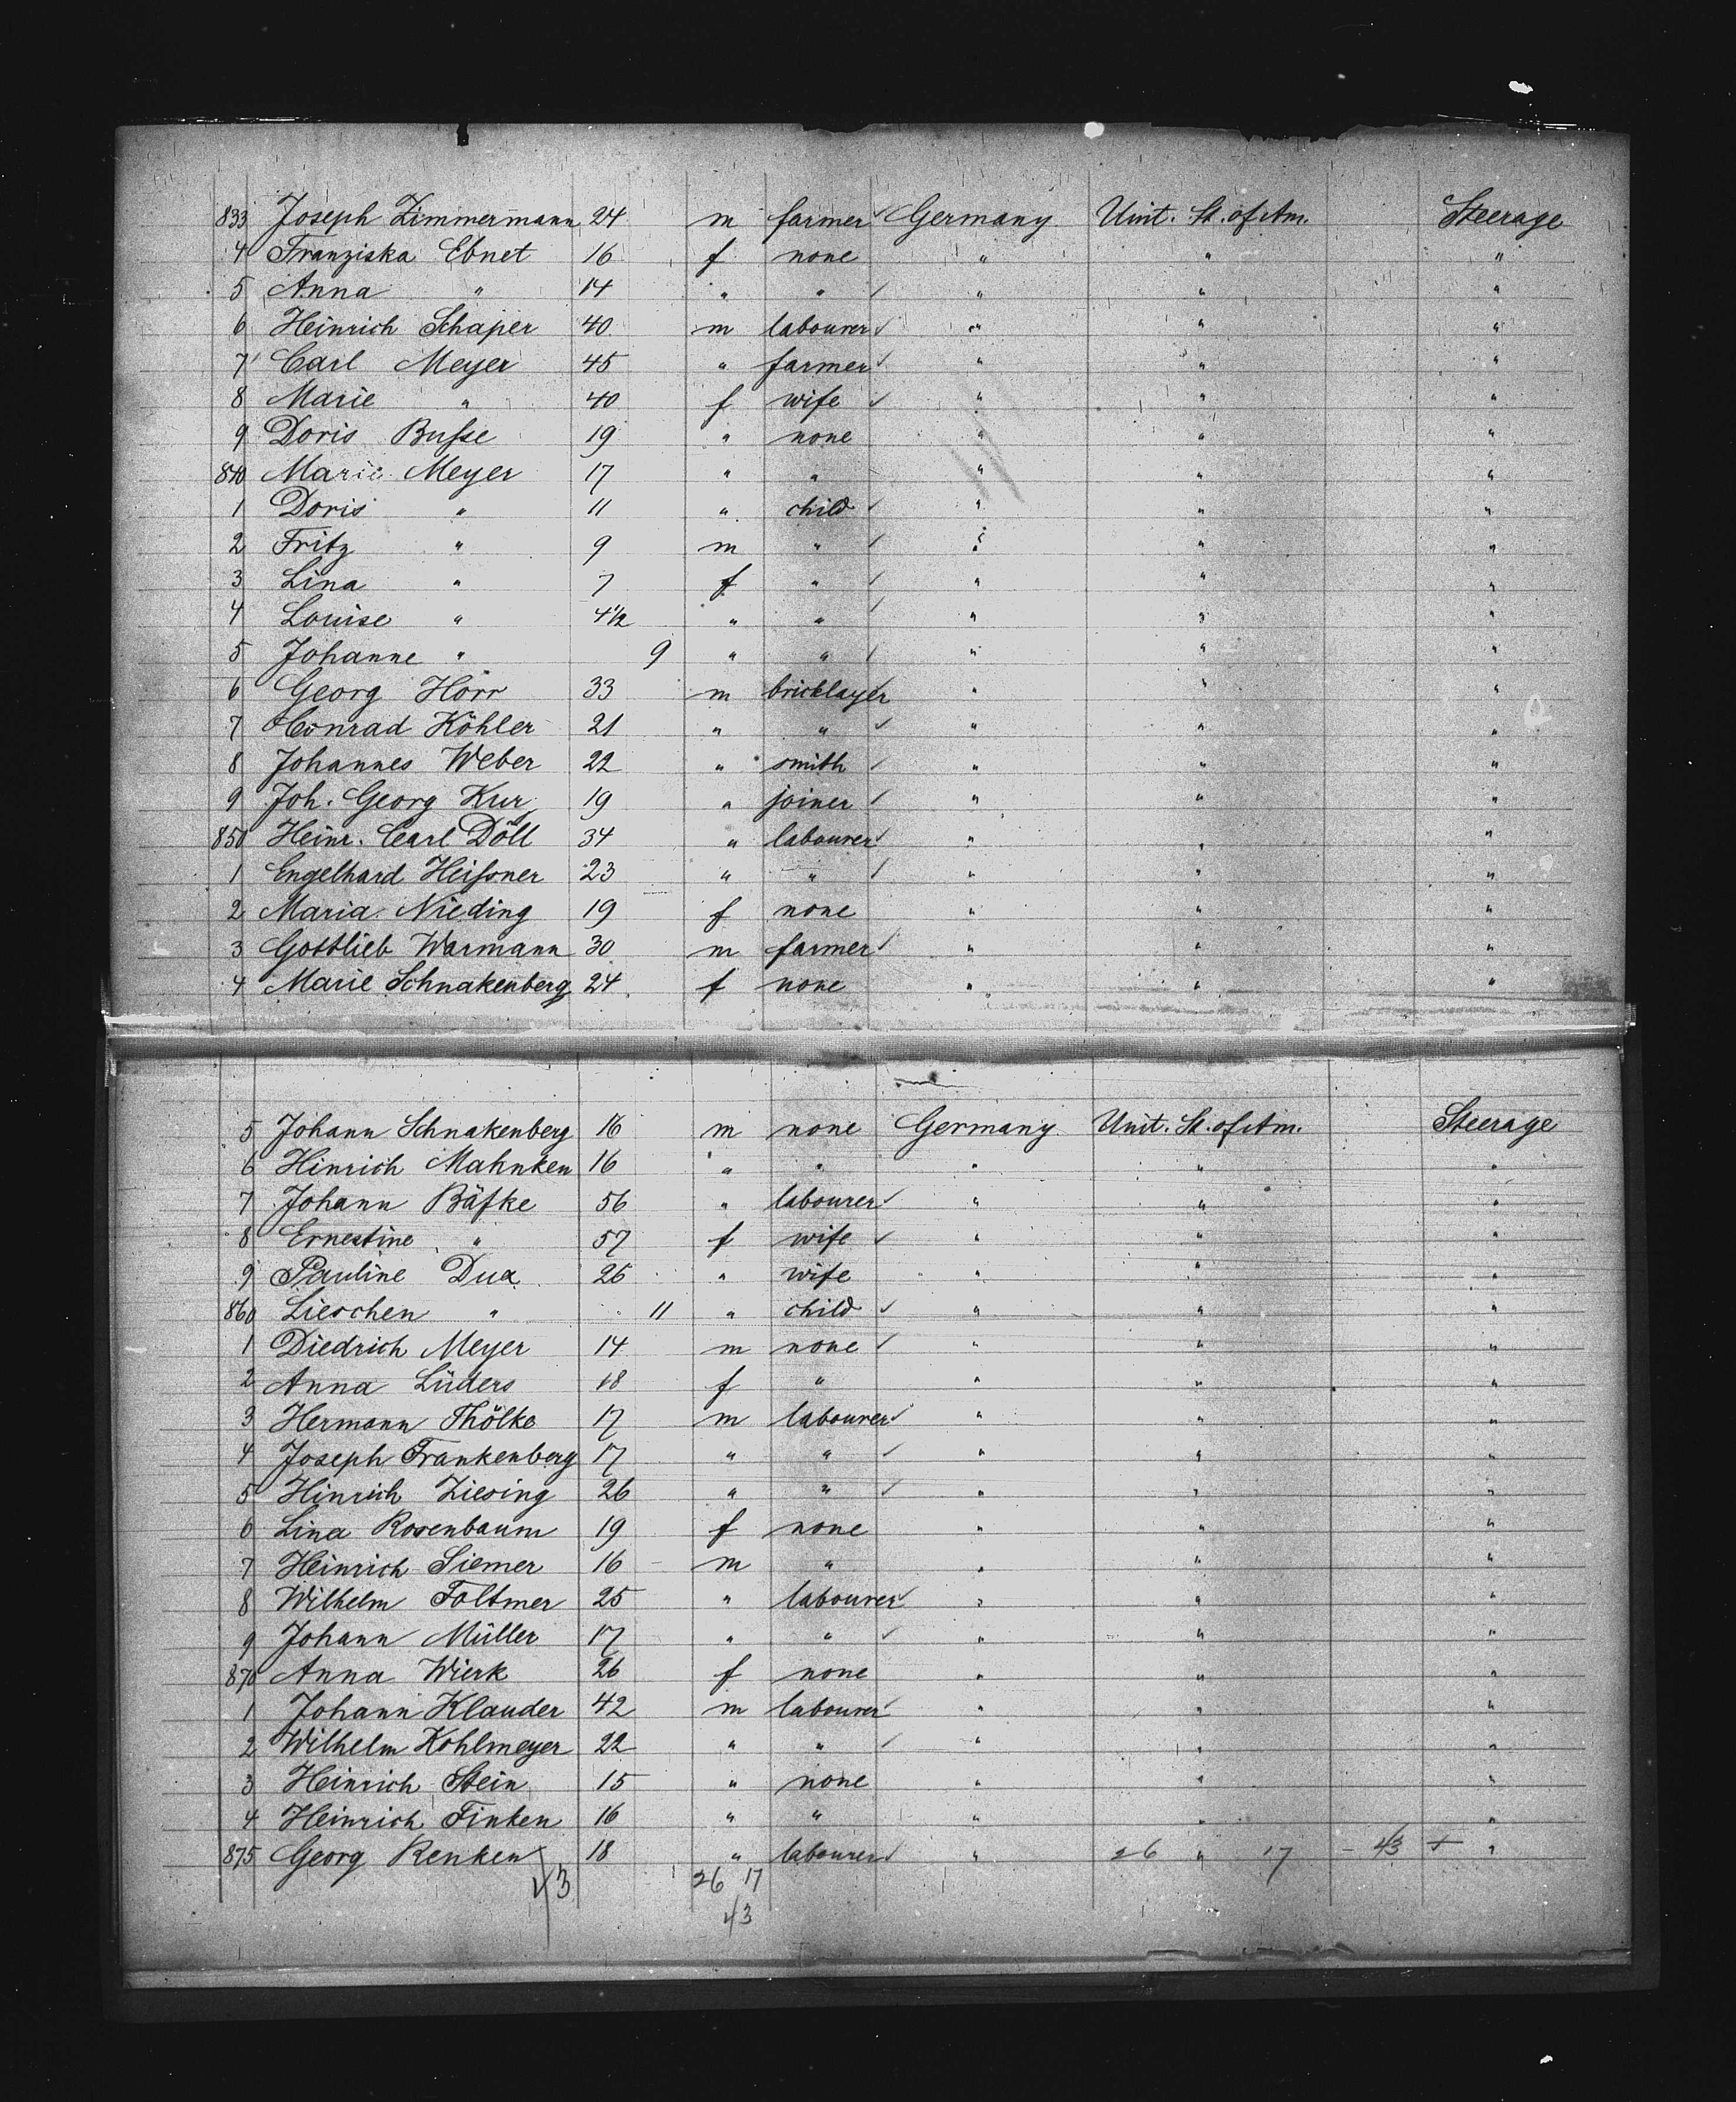 833 Joseph Zimmermann 24 m farmer Germany Unit. St. of Am. Steerage
4 Franziska Ebnet 16 f none " " "
5 Anna " 14 " " " " "
6 Heinrich Schaper 40 m labourer " " "
7 Carl Meyer 45 " farmer " " "
8 Marie " 40 f wife " " "
9 Doris Busse 19 " none " " "
840 Marie Meyer 17 " " " " "
1 Doris " 11 " child " " "
2 Fritz " 9 m " " " "
3 Lina " 7 f " " " "
4 Louise " 4 1/2 " " " " "
5 Johanne " 9 " " " " "
6 Georg Hörr 33 m bricklayer " " "
7 Conrad Köhler 21 " " " " "
8 Johannes Weber 22 " smith " " "
9 Joh. Georg Kur 19 " joiner " " "
850 Heinr. Carl Döll 34 " labourer " " "
1 Engelhard Heissner 23 " " " " "
2 Maria Nieding 19 f none " " "
3 Gottlieb Warmann 30 m farmer " " "
4 Marie Schnakenberg 24 f none " " "
5 Johann Schnakenberg 16 m none Germany Unit. St. of Am. Steerage
6 Hinrich Mahnken 16 " " " " "
7 Johann Bäfke 56 " labourer " " "
8 Ernestine " 57 f wife " " "
9 Pauline Dux 26 " wife " " "
860 Lieschen " 11 " child " " "
1 Diedrich Meyer 14 m none " " "
2 Anna Lüders 18 f " " " "
3 Hermann Thölke 17 m labourer " " "
4 Joseph Frankenberg 17 " " " " "
5 Hinrich Ziesing 26 " " " " "
6 Lina Rosenbaum 19 f none " " "
7 Heinrich Siemer 16 m " " " "
8 Wilhelm Foltmer 25 " labourer " " "
9 Johann Müller 17 " " " " "
870 Anna Wierk 26 f none " " "
1 Johann Klauder 42 m labourer " " "
2 Wilhelm Kohlmeyer 22 " " " " "
3 Heinrich Stein 15 " none " " "
4 Heinrich Finken 16 " " " " "
875 Georg Renken 18 " labourer " 26 " 17 - 43 + "
43 26 17
43